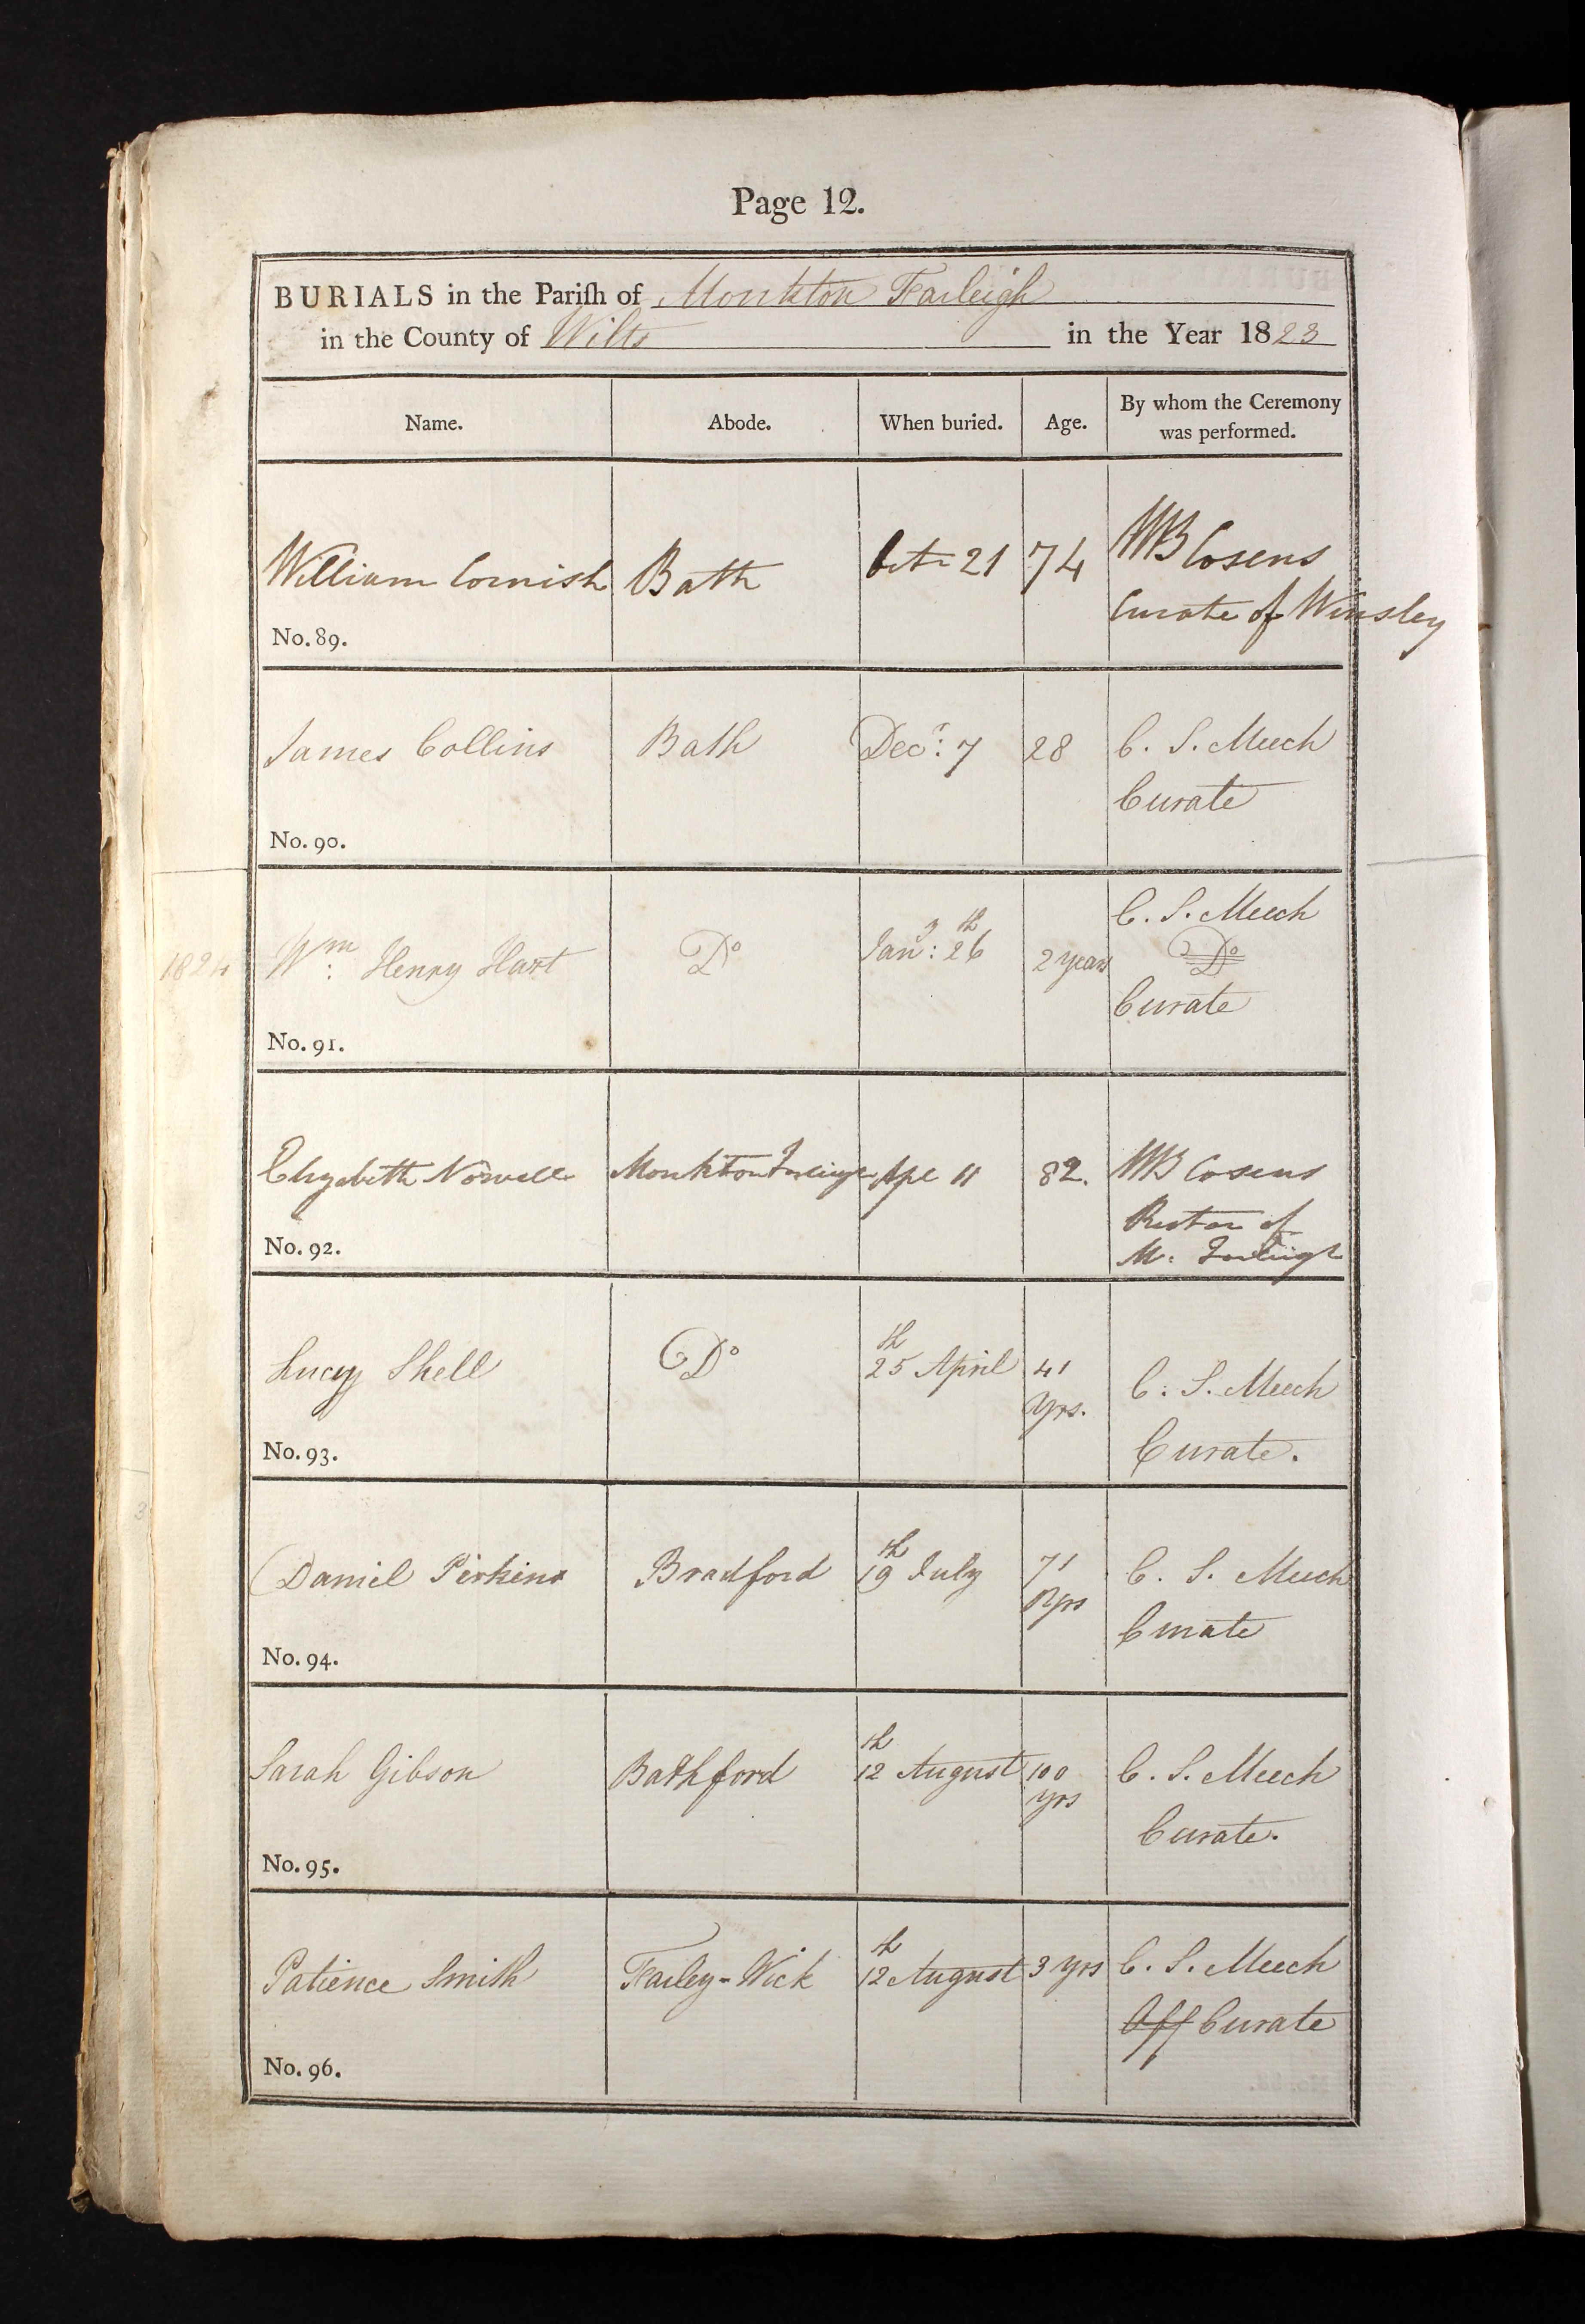 Page 12.
BURIALS in the Parish of Monkton Farleigh
in the County of Wilts in the Year 1823
Name. Abode. When buried. Age. By whom the Ceremony was performed.
William Cornish Bath Octr 21 74 WB Cosens
Curate of Winsley
No. 89.
James Collins Bath Decr: 7 28 C. S. Meech
Curate
No. 90.
C. S. Meech
1824 Wm: Henry Hart Do Jany: 26th 2 years Do
Curate
No. 91.
Elizabeth Nowell Monkton Farleigh Apl 11 82. WB Cosens
Rector of
No. 92.
M. Farleigh
Lucy Shell Do 25th April 41 Yrs. C. S. Meech
Curate.
No. 93.
Daniel Perkins Bradford 19th July 71 Yrs C. S. Meech
Curate
No. 94.
Sarah Gibson Bathford 12th August 100 yrs C. S. Meech
Curate.
No. 95.
Patience Smith Farley-Wick 12th August 3 yrs C. S. Meech
Off Curate
No. 96.